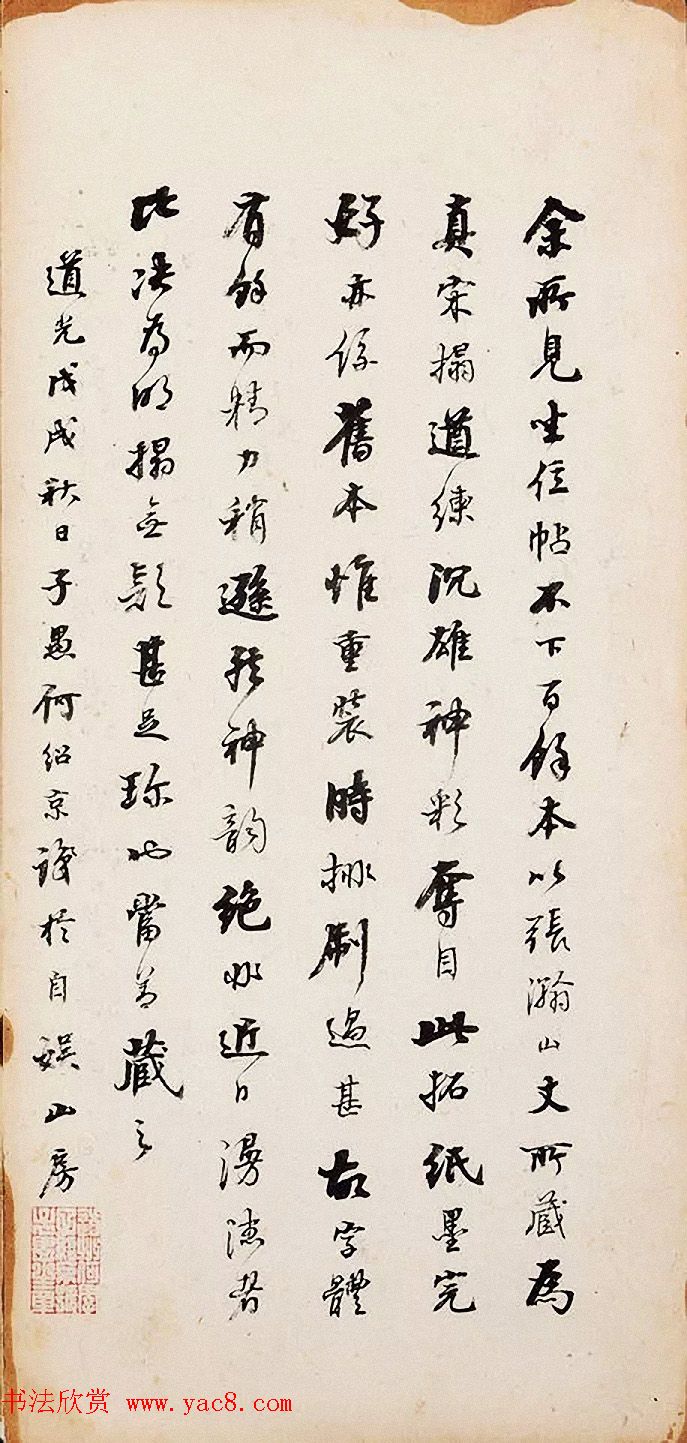 余所見坐位帖不下百餘本以張瀚山丈所藏為
真宋搨遒練沉雄神彩奪目此拓紙墨完
好亦係舊本惟重裝時揪刷過甚故字體
有餘而精力稍遜於神韵絕非近日漫漶者
比决為明搨無疑甚足珍也當善藏之
道光戊戌秋日子愚何紹京識於自娛山房
书法欣赏 www.yac8.com